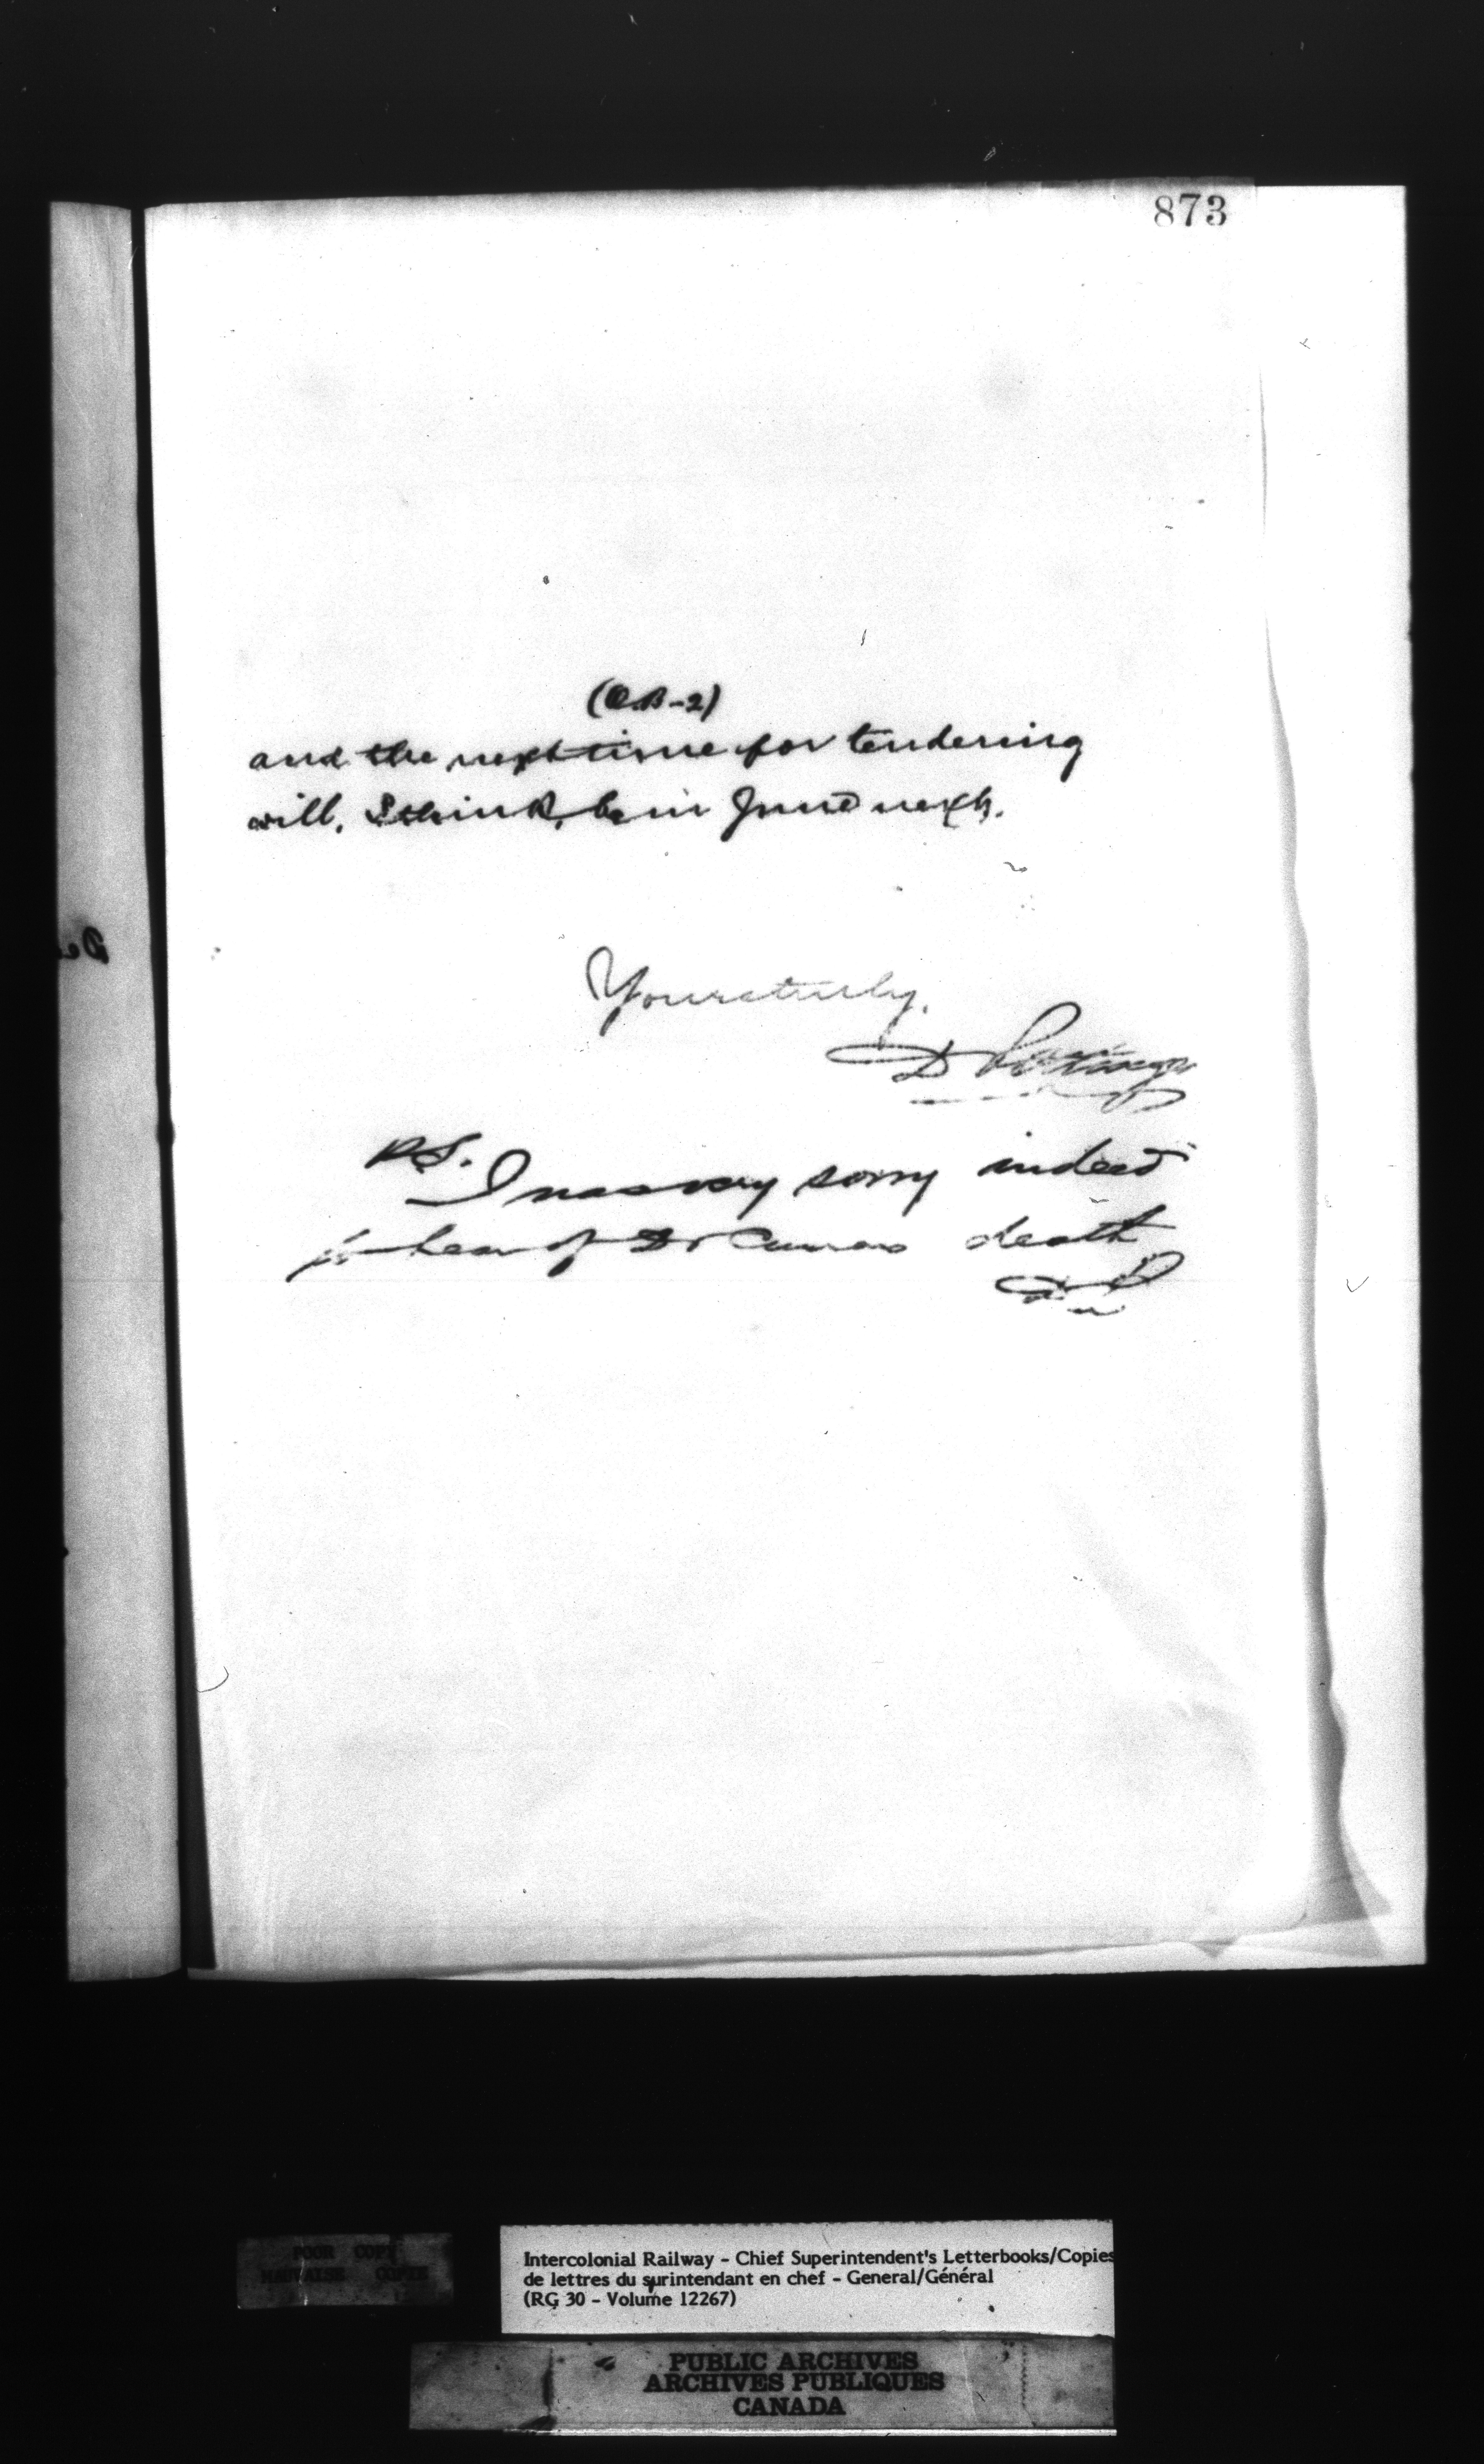 873
(O.B-2)
and the next time for tendering
will, I think, be in June next.
Yours truly,
D Pottinger
P.S.
I was very sorry indeed
to hear of Dr death
DP
POOR COPY
MAUVAISE COPIE
Intercolonial Railway - Chief Superintendent's Letterbooks/Copies
de lettres du surintendant en chef - General/Général
(RG 30 - Volume 12267)
PUBLIC ARCHIVES
ARCHIVES PUBLIQUES
CANADA